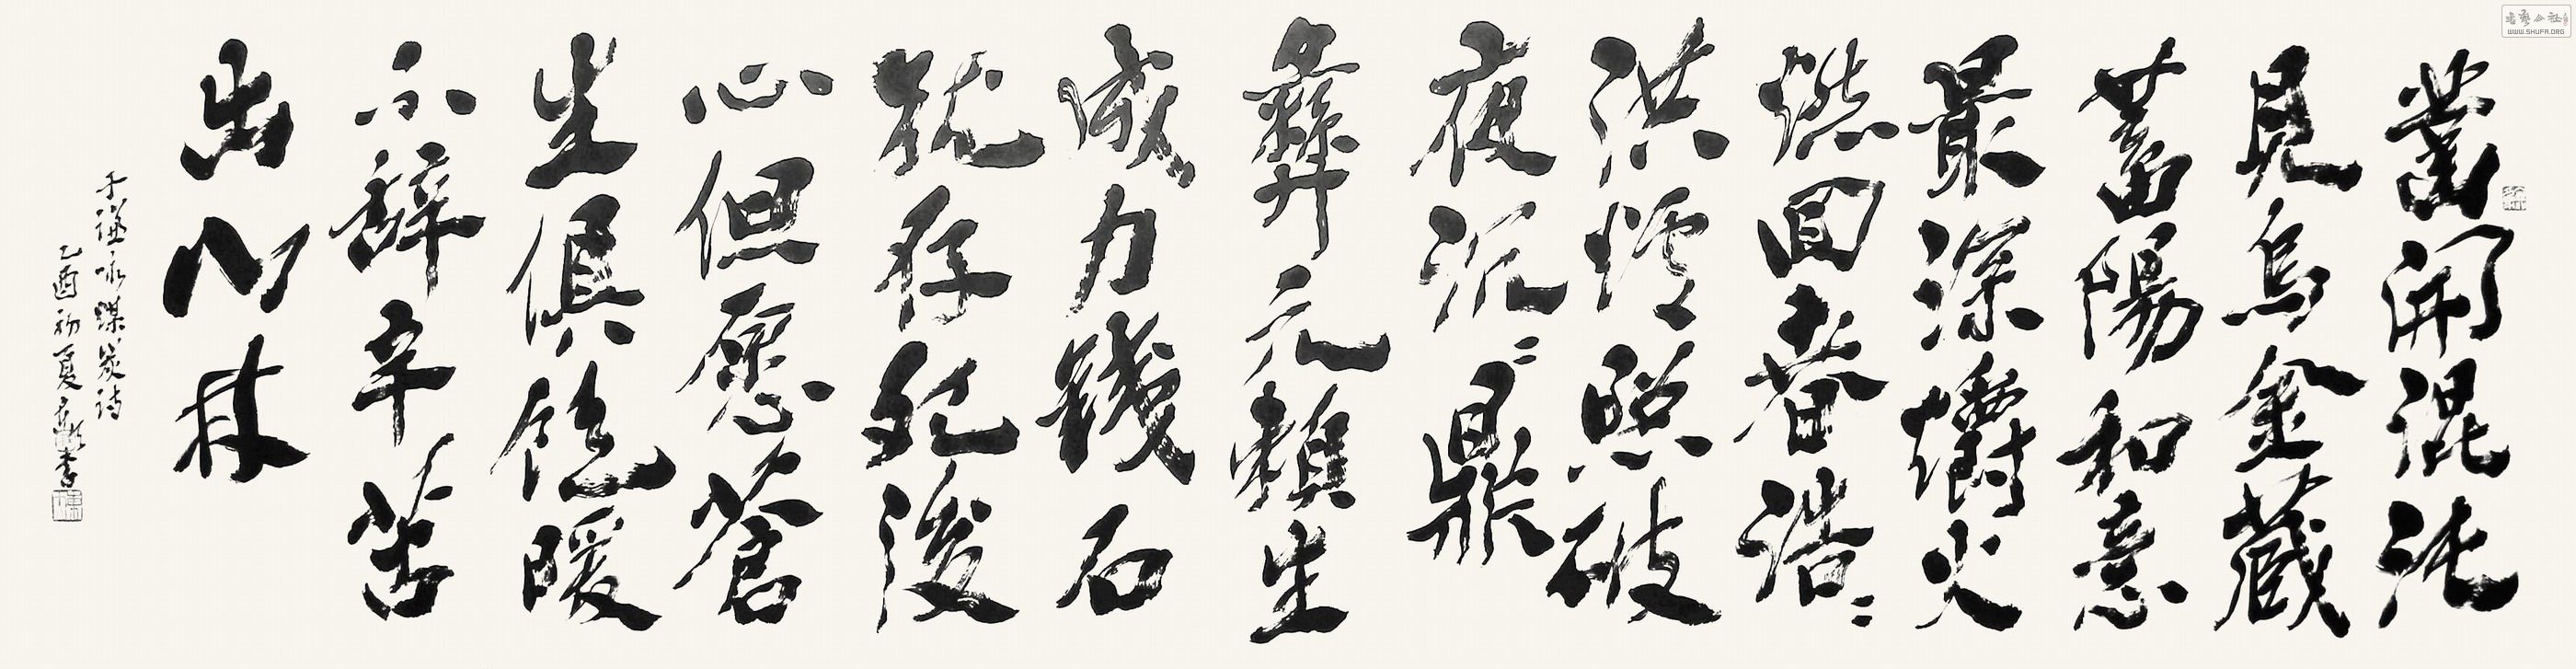 鑿開混沌
見烏金藏
蓄陽和意
最深爝火
燃回春浩〻
洪爐照破
夜沉〻鼎
彝元賴生
成力鐵石
犹存死後
心但愿蒼
生俱飽暖
不辭辛苦
出山林
于謙咏煤炭诗
乙酉初夏
WWW.SHUFA.ORG